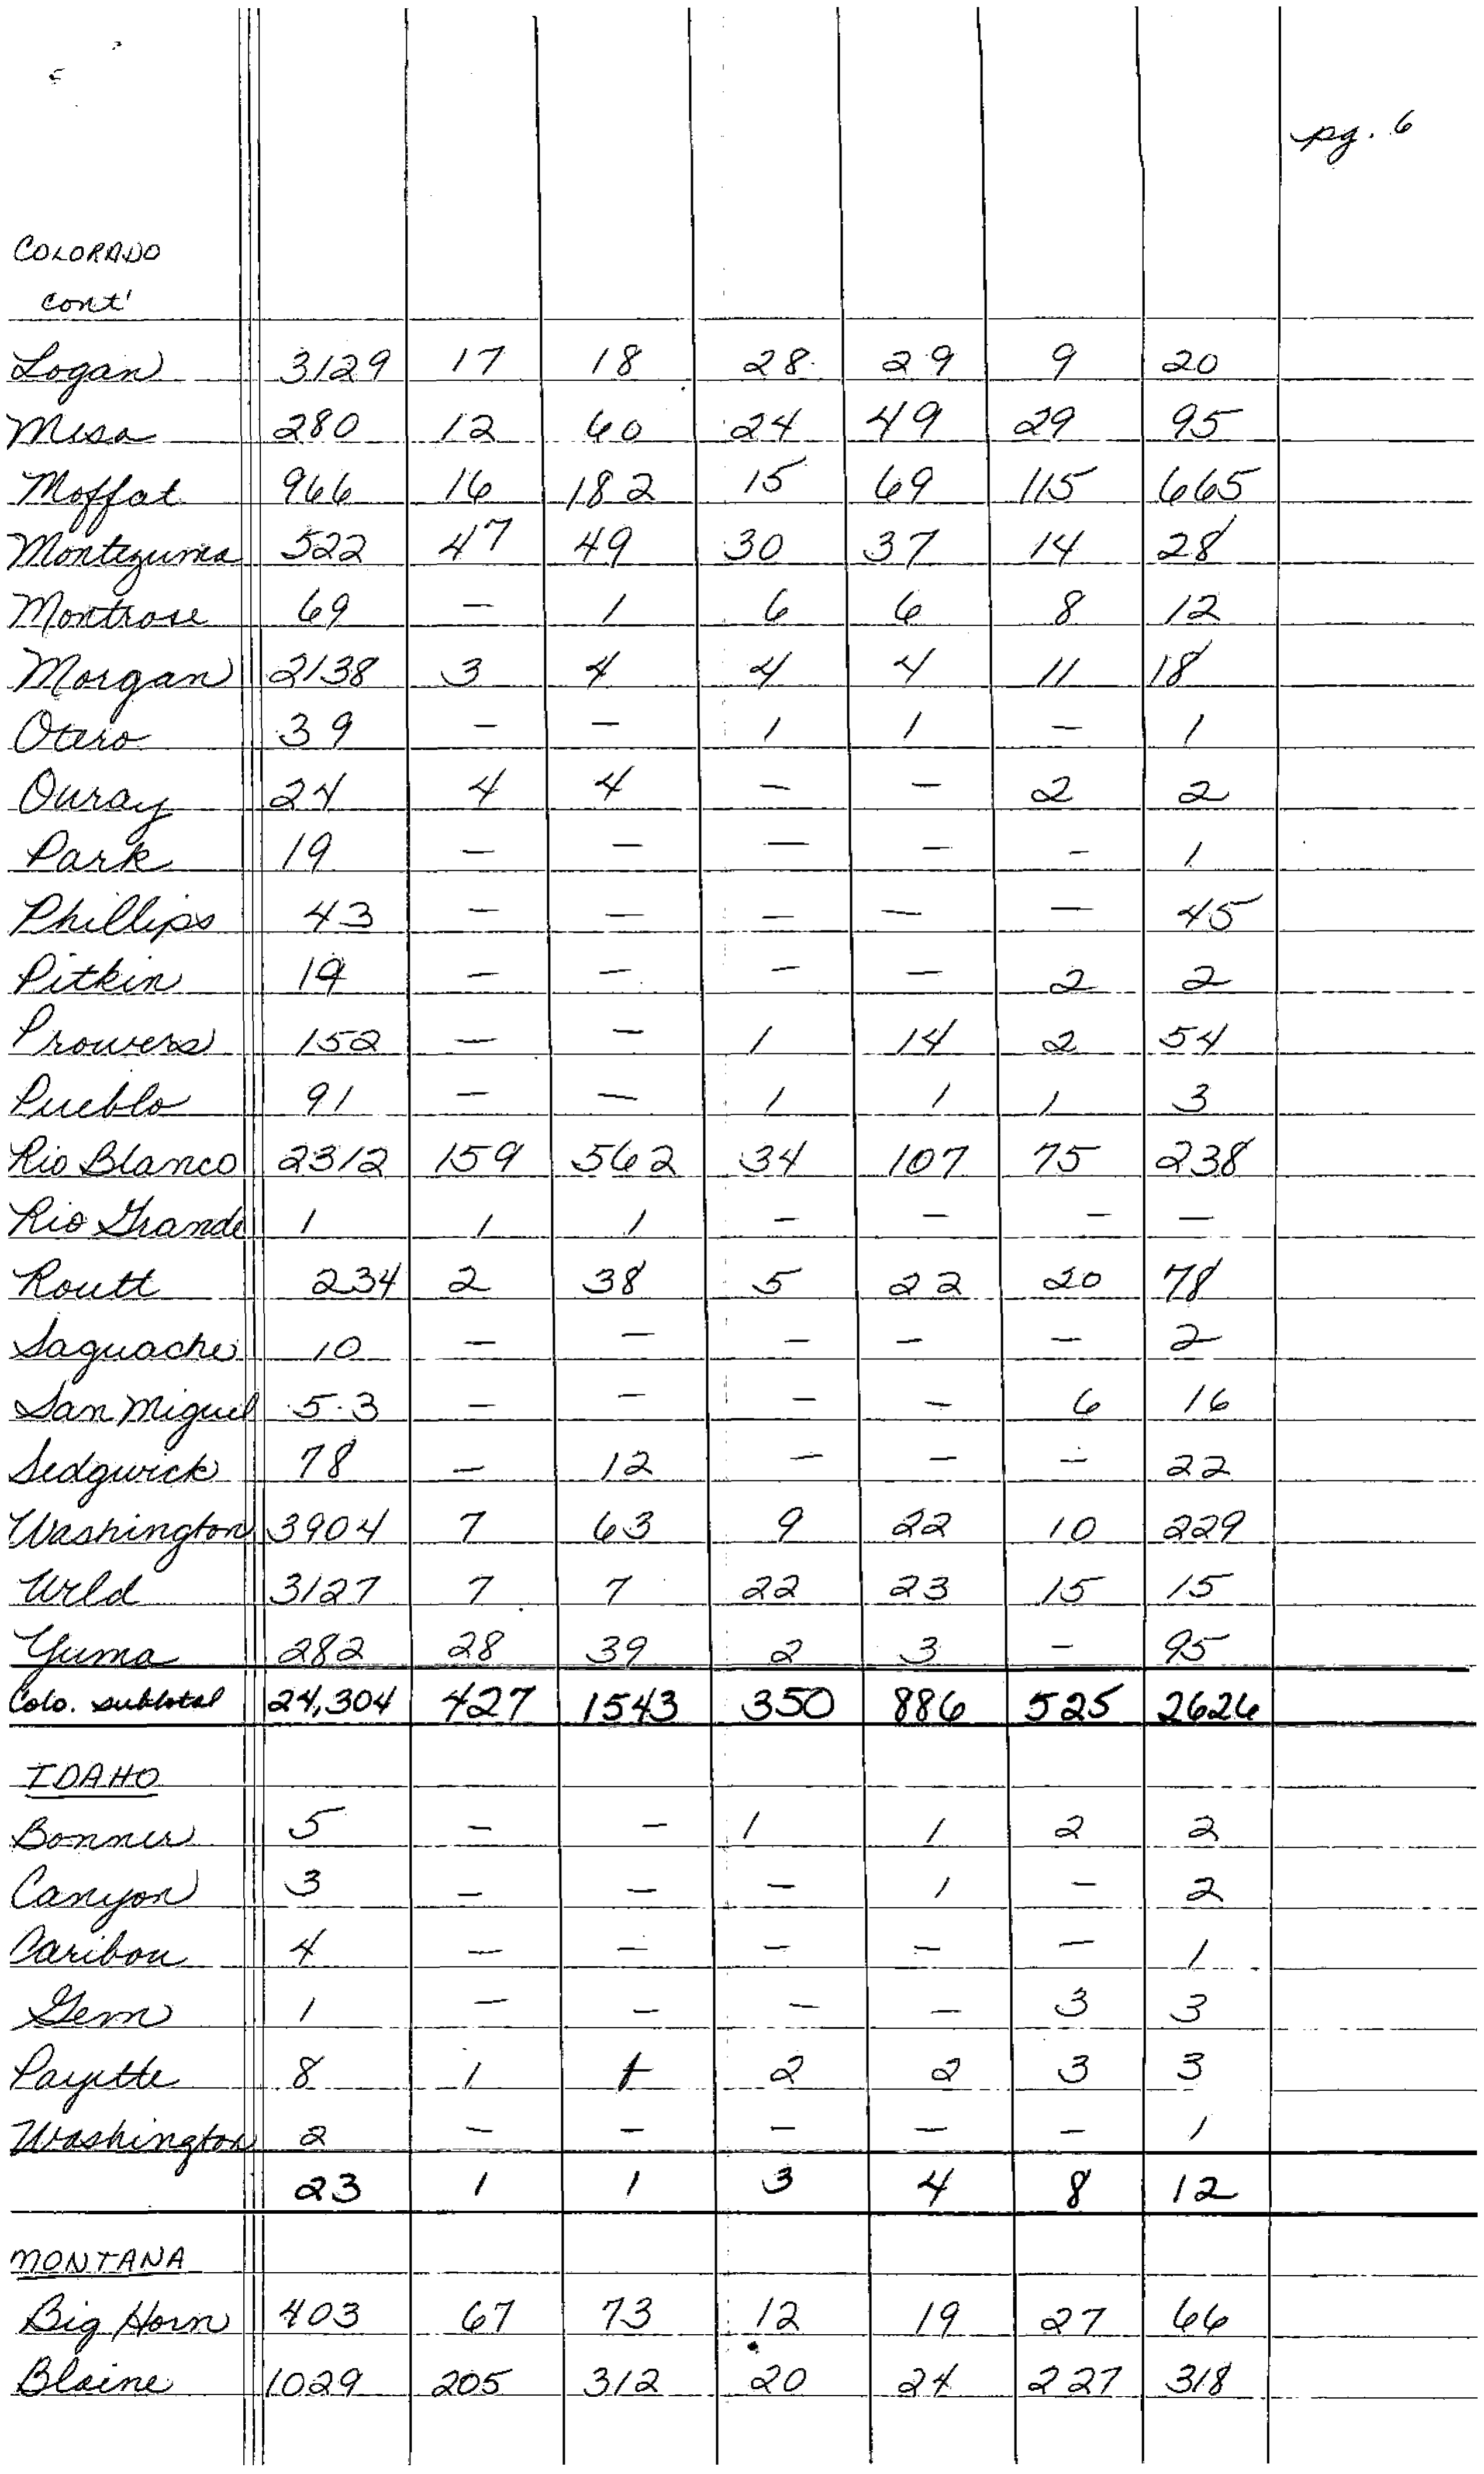 pg. 6
COLORADO
cont'
Logan 3129 17 18 28 29 9 20
Mesa 280 12 60 24 49 29 95
Moffat 966 16 182 15 69 115 665
Montezuma 522 47 49 30 37 14 28
Montrose 69 — 1 6 6 8 12
Morgan 2138 3 4 4 4 11 18
Otero 39 — — 1 1 — 1
Ouray 24 4 4 — — 2 2
Park 19 — — — — — 1
Phillips 43 — — — — — 45
Pitkin 19 — — — — 2 2
Prowers 152 — — 1 14 2 54
Pueblo 91 — — 1 1 1 3
Rio Blanco 2312 159 562 34 107 75 238
Rio Grande 1 1 1 — — — —
Routt 234 2 38 5 22 20 78
Saguache 10 — — — — — 2
San Miguel 53 — — — — 6 16
Sedgwick 78 — 12 — — — 22
Washington 3904 7 63 9 22 10 229
Weld 3127 7 7 22 23 15 15
Yuma 282 28 39 2 3 — 95
Colo. subtotal 24,304 427 1543 350 886 525 2626
IDAHO
Bonner 5 — — 1 1 2 2
Canyon 3 — — — 1 — 2
Caribou 4 — — — — — 1
Gem 1 — — — — 3 3
Payette 8 1 1 2 2 3 3
Washington 2 — — — — — 1
23 1 1 3 4 8 12
MONTANA
Big Horn 403 67 73 12 19 27 66
Blaine 1029 205 312 20 24 227 318